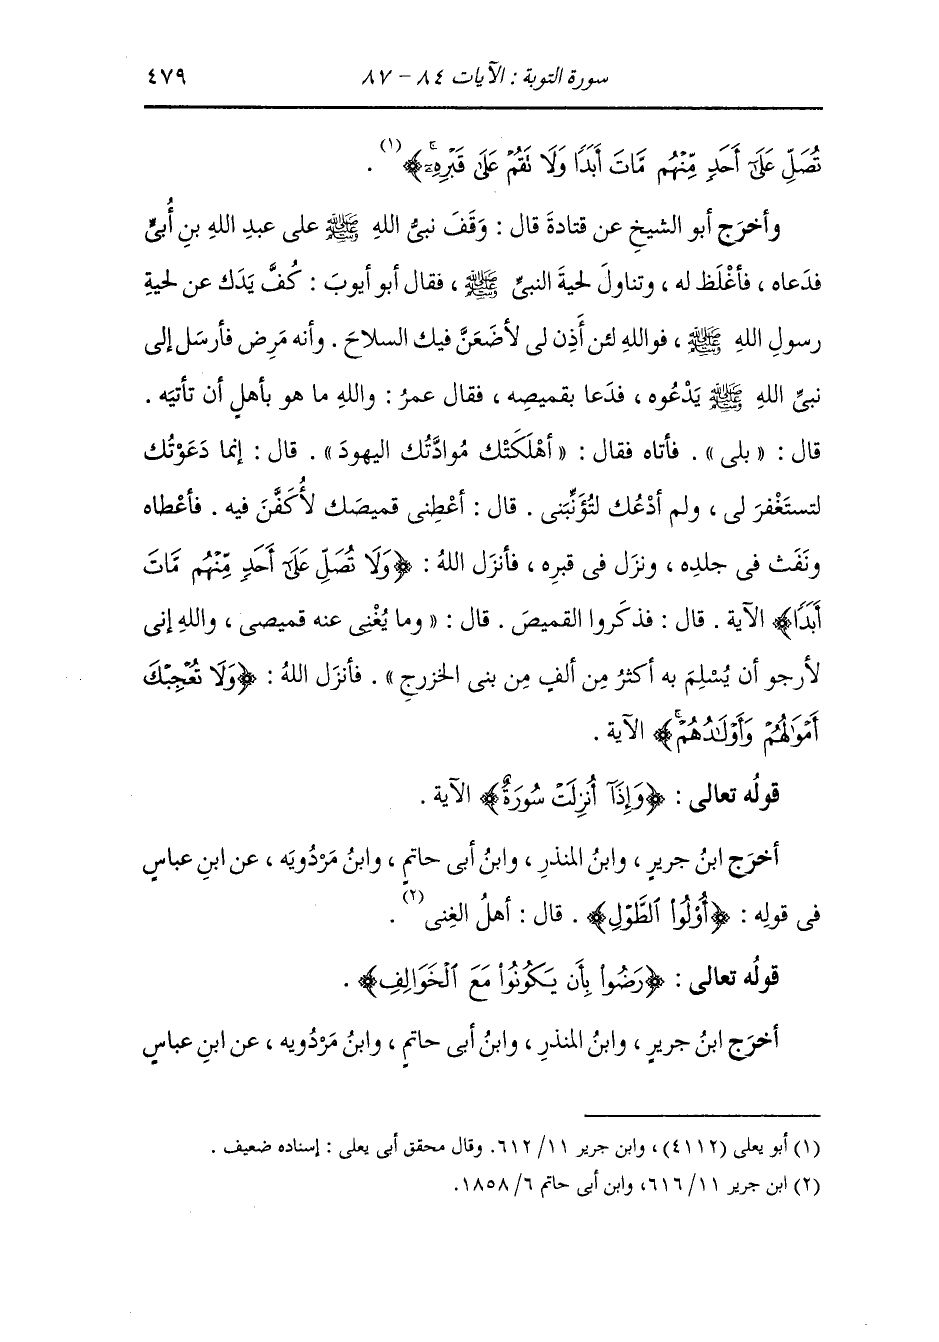 سورة التوبة : الآيات ٨٤ – ٨٧ ٤٧٩
تُصَلِّ عَلَىٰٓ أَحَدٍ مِّنْهُم مَّاتَ أَبَدًا وَلَا تَقُمْ عَلَىٰ قَبْرِهِۦٓۚ﴾(١) .
وأخرَج أبو الشيخِ عن قتادةَ قال : وَقَفَ نبىُّ اللهِ ﷺ على عبدِ اللهِ بنِ أُبىٍّ
فدَعاه ، فأغْلَظ له ، وتناولَ لحيةَ النبىِّ ﷺ ، فقال أبو أيوبَ : كُفَّ يَدَك عن لحيةِ
رسولِ اللهِ ﷺ ، فواللهِ لئن أَذِن لى لأضَعَنَّ فيك السلاحَ . وأنه مَرِض فأرسَل إلى
نبىِّ اللهِ ﷺ يَدْعُوه ، فدَعا بقميصِه ، فقال عمرُ : واللهِ ما هو بأهلٍ أن تأتيَه .
قال : « بلى » . فأتاه فقال : « أهْلَكَتْك مُوادَّتُك اليهودَ » . قال : إنما دَعَوْتُك
لتستَغْفرَ لى ، ولم أدْعُك لتُؤَنِّبَنى . قال : أعْطِنى قميصَك لأُكَفَّنَ فيه . فأعْطاه
ونَفَث فى جلدِه ، ونزَل فى قبرِه ، فأنزَل اللهُ : ﴿وَلَا تُصَلِّ عَلَىٰٓ أَحَدٍ مِّنْهُم مَّاتَ
أَبَدًا﴾ الآية . قال : فذكَروا القميصَ . قال : « وما يُغْنِى عنه قميصى ، واللهِ إنى
لأرجو أن يُسْلِمَ به أكثرُ مِن ألفٍ مِن بنى الخزرجِ » . فأنزَل اللهُ : ﴿وَلَا تُعْجِبْكَ
أَمْوَٰلُهُمْ وَأَوْلَـٰدُهُمْۚ﴾ الآية .
قولُه تعالى : ﴿وَإِذَآ أُنزِلَتْ سُورَةٌ﴾ الآية .
أخرَج ابنُ جريرٍ ، وابنُ المنذرِ ، وابنُ أبى حاتمٍ ، وابنُ مَرْدُويَه ، عن ابنِ عباسٍ
فى قولِه : ﴿أُوْلُوا۟ ٱلطَّوْلِ﴾ . قال : أهلُ الغِنى(٢) .
قولُه تعالى : ﴿رَضُوا۟ بِأَن يَكُونُوا۟ مَعَ ٱلْخَوَالِفِ﴾ .
أخرَج ابنُ جريرٍ ، وابنُ المنذرِ ، وابنُ أبى حاتمٍ ، وابنُ مَرْدُويه ، عن ابنِ عباسٍ
(١) أبو يعلى (٤١١٢) ، وابن جرير ١١/ ٦١٢. وقال محقق أبى يعلى : إسناده ضعيف .
(٢) ابن جرير ١١/ ٦١٦، وابن أبى حاتم ٦/ ١٨٥٨.